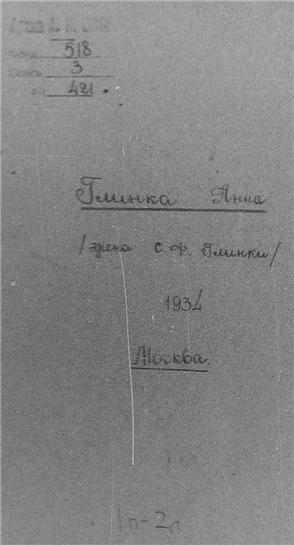 Архив А. Н. СССР
Фонд 518
Опись 3
№ 421.
Глинка Анна
/жена С. Ф. Глинки/
1934
Москва.
1п-2л